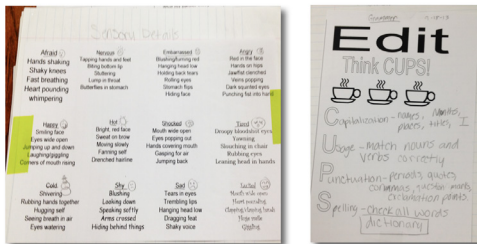 Sensory Details
Afraid
Hands shaking
Shaky knees
Fast breathing
Heart pounding
whimpering
Nervous
Tapping hands and feet
Biting bottom lip
Stuttering
Lump in throat
Butterflies in stomach
Embarrassed
Blushing/turning red
Hanging head low
Holding back tears
Rolling eyes
Stomach flips
Hiding face
Angry
Red in the face
Hands on hips
Jaw/fist clenched
Veins popping
Dark squinted eyes
Punching fist into hand
Happy
Smiling face
Eyes wide open
Jumping up and down
Laughing/giggling
Corners of mouth rising
Hot
Bright, red face
Sweat on brow
Moving slowly
Fanning self
Drenched hairline
Shocked
Mouth wide open
Eyes popping out
Hands covering mouth
Gasping for air
Jumping back
Tired
Droopy bloodshot eyes
Yawning
Slouching in chair
Rubbing eyes
Leaning head in hands
Cold
Shivering
Rubbing hands together
Hugging self
Seeing breath in air
Eyes watering
Shy
Blushing
Looking down
Speaking softly
Arms crossed
Hiding behind things
Sad
Tears in eyes
Trembling lips
Hanging head low
Dragging feet
Shaky voice
Excited
Heart pounding
Edit
Think CUPS!
Capitalization - names, months,
places, titles, I
Usage - match nouns and
verbs correctly
Punctuation - periods, quotes
commas, question marks,
exclamation points.
Spelling - check all words
dictionary